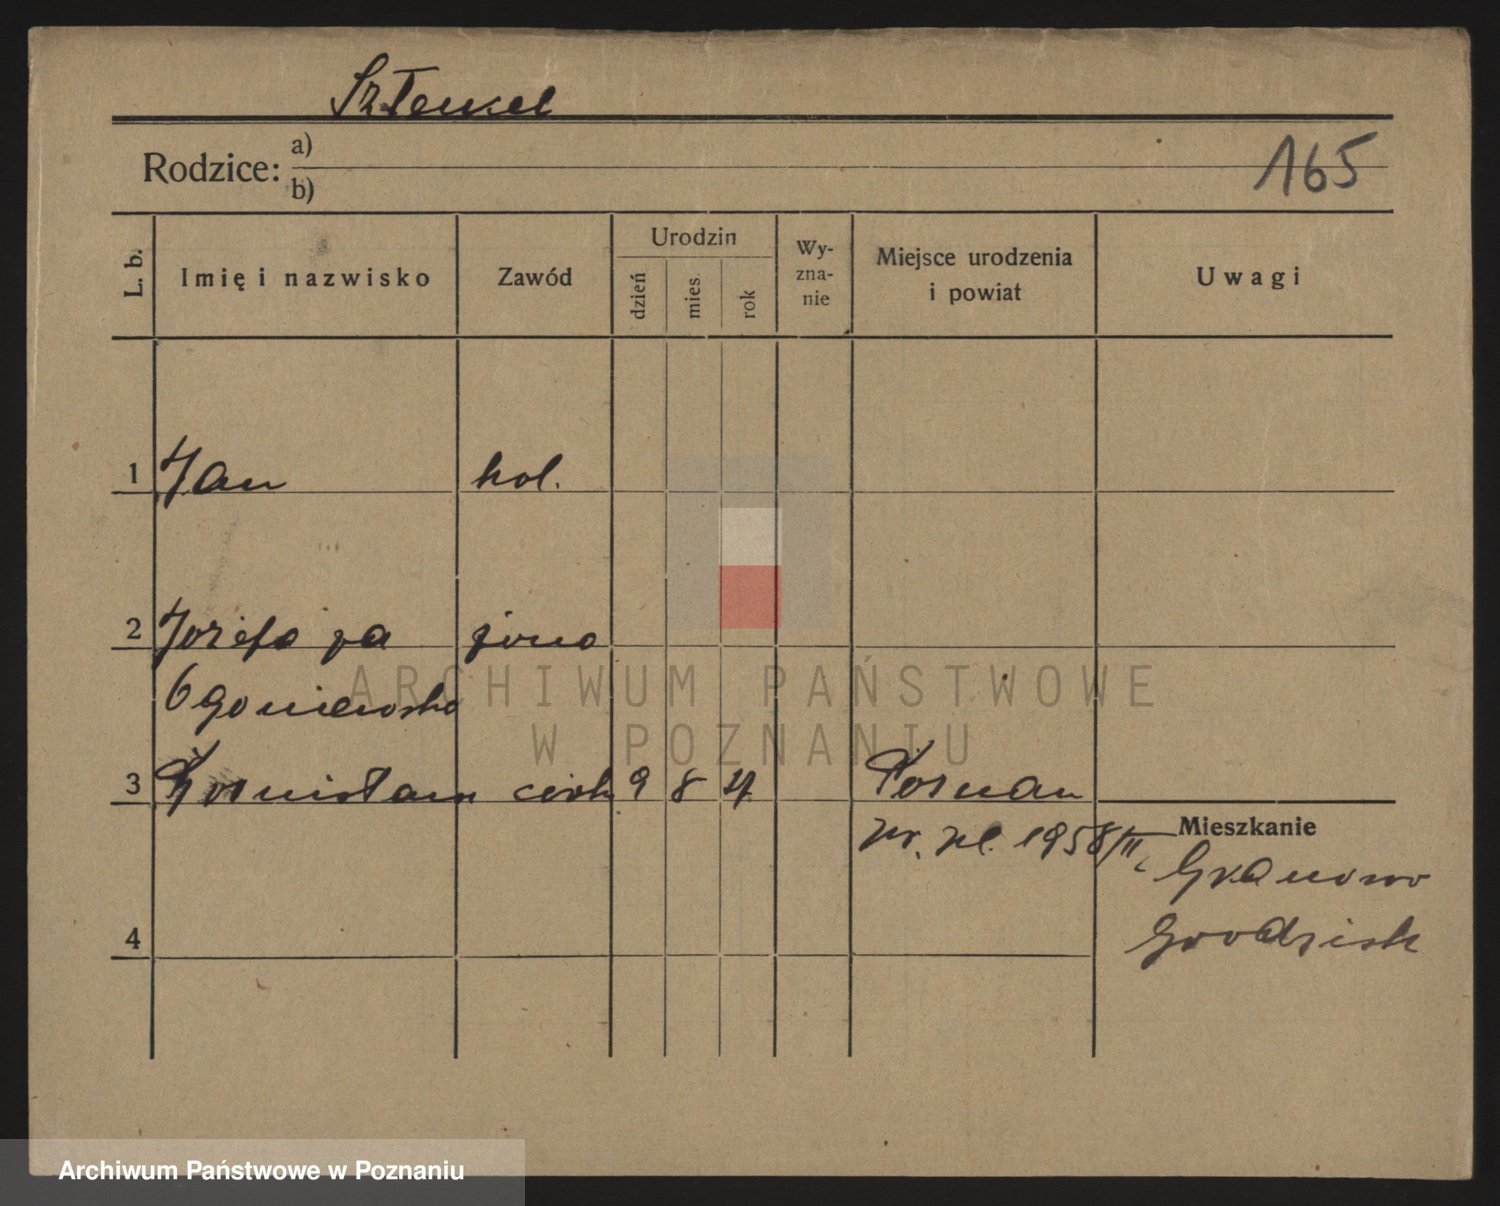 Sztencel
Rodzice: a)
b)
165
L. b.
Imię i nazwisko
Zawód
Urodzin
dzień
mies.
rok
Wy-
zna-
nie
Miejsce urodzenia
i powiat
Uwagi
1 Jan kol.
2 Józefa za żona
Ogoniewska
3 córka 9 8 24 Poznan
nr. pl. 1958/II
Mieszkanie
Granowo
Grodzisk
4
ARCHIWUM PAŃSTWOWE
W POZNANIU
Archiwum Państwowe w Poznaniu